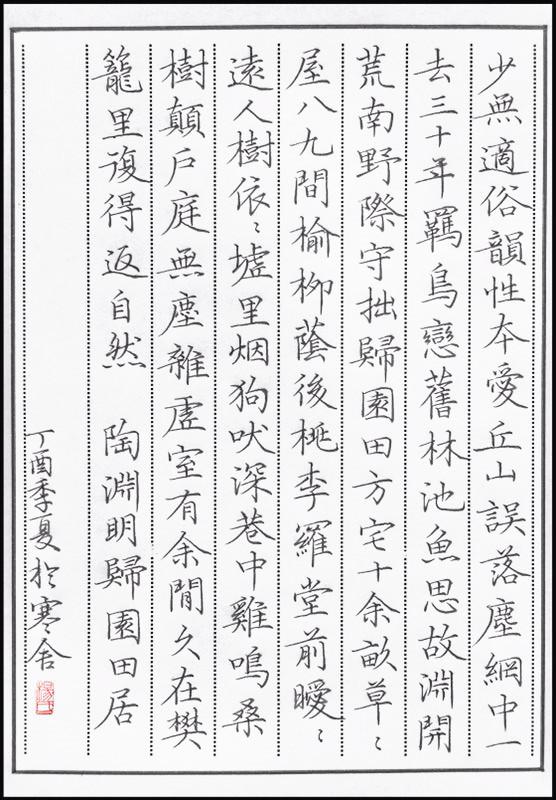 少無適俗韻性本愛丘山誤落塵網中一
去三十年羈鳥戀舊林池魚思故淵開
荒南野際守拙歸園田方宅十余畝草〻
屋八九間榆柳蔭後桃李羅堂前曖〻
遠人樹依〻墟里烟狗吠深巷中雞鳴桑
樹顛戶庭無塵雜虛室有余閒久在樊
籠里復得返自然 陶淵明歸園田居
丁酉季夏於寒舍